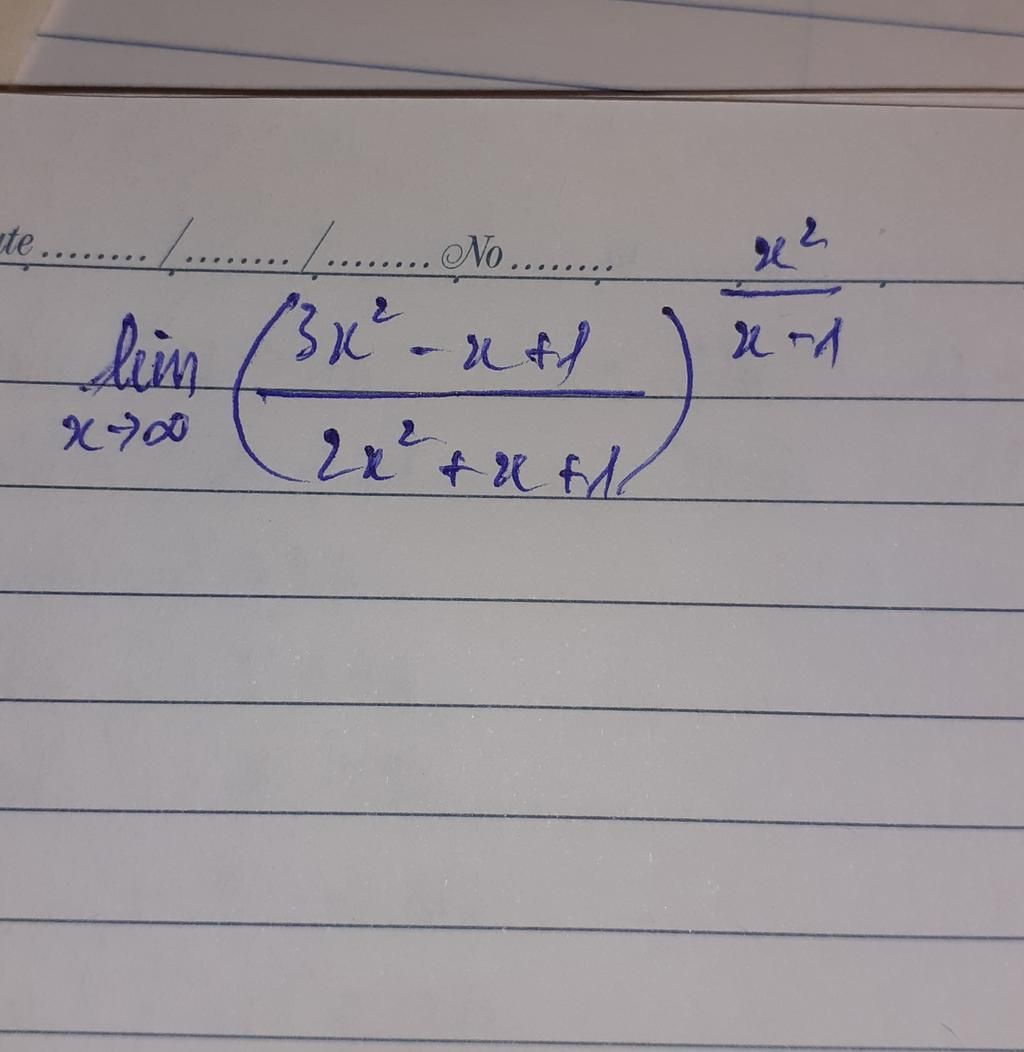 ate ......../......../........ No ........
lim x→∞ ( (3x² - x + 1) / (2x² + x + 1) ) ^ (x² / (x - 1))